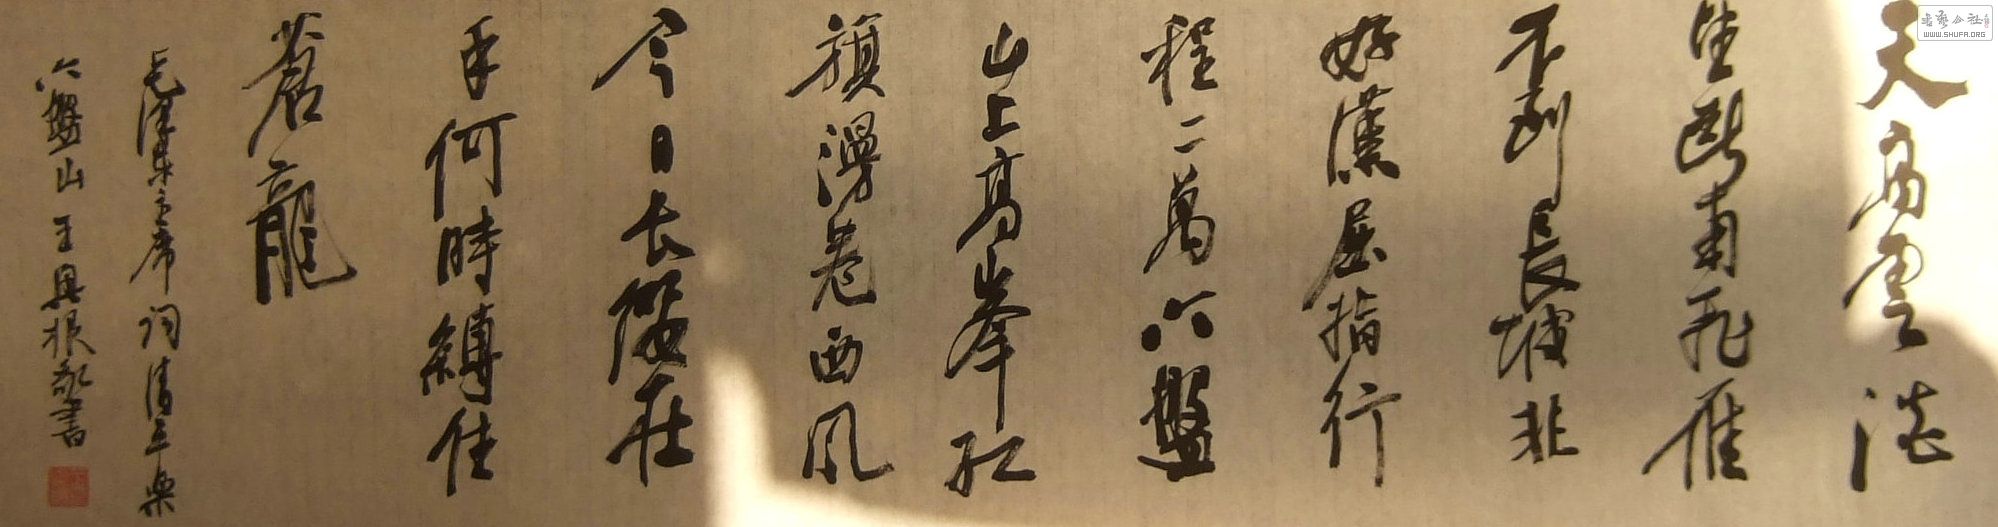 天高雲淡
望断南飛雁
不到長城非
好漢屈指行
程二萬六盤
山上高峯紅
旗漫卷西風
今日长缨在
手何時縛住
蒼龍
毛澤東主席詞清平樂
六盤山 王興根敬書
書藝公社
WWW.SHUFA.ORG